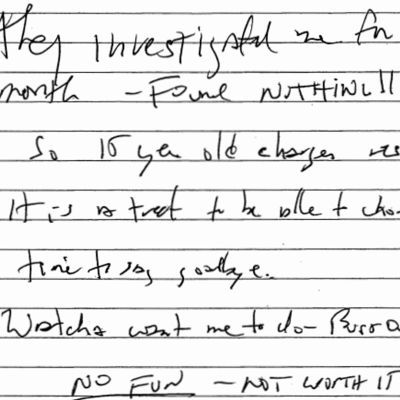 They investigated me for
month - Found NOTHING!!
So 15 year old charges res
It is a treat to be able to choo
time to say goodbye.
Watcha want me to do - Burro
NO FUN - NOT WORTH IT